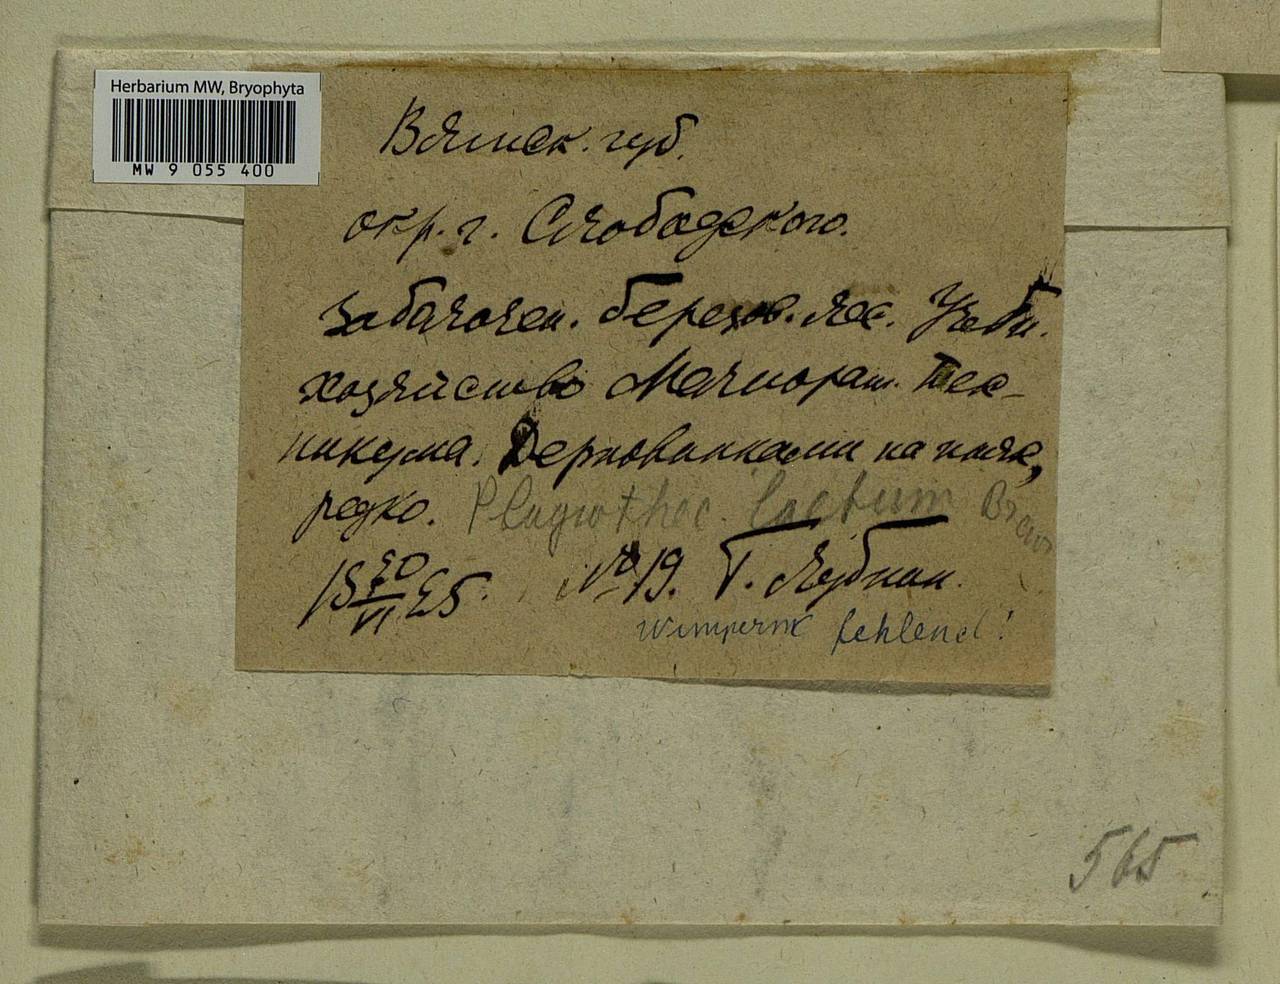 Herbarium MW, Bryophyta
MW 9 055 400
Вятск. губ.
окр. г. Слободского.
заболочен. березов. лес. Учебн.
хозяйство Мелиорат. Тех-
никума. Дерновинками на пнях,
редко. Plagiothec. laetum Br eur
№ 19. Г.
fehlend!
565